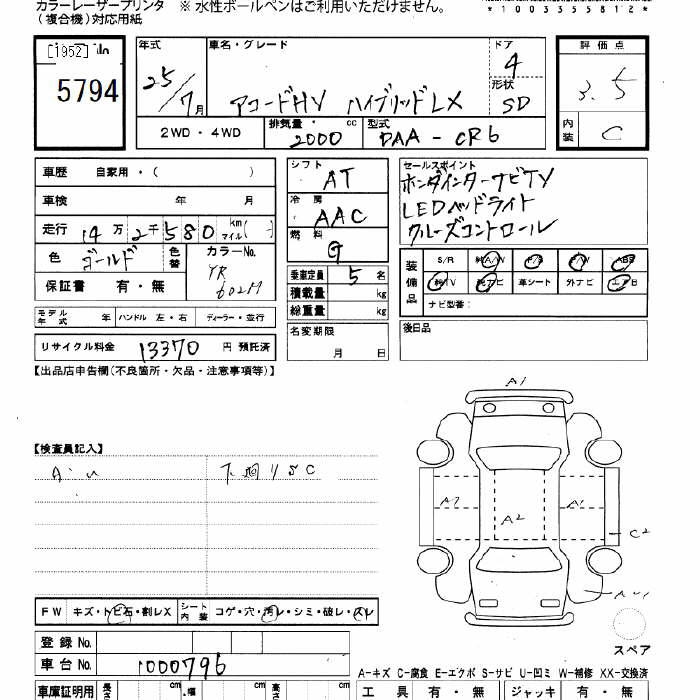 カラーレーザープリンタ ※ 水性ボールペンはご利用いただけません。
(複合機)対応用紙
*1003355812*
[1952]
5794
年式
25/7月
2WD・4WD
車名・グレード
アコードHV ハイブリッドLX
ドア
4
形状
SD
排気量・cc
2000
型式
DAA-CR6
評価点
3.5
内装
C
車歴 自家用・( )
車検 年 月
走行 14万2千580 km(マイル)
色 ゴールド
色替
カラーNo.
YR602M
保証書 有・無
モデル年式 年 ハンドル 左・右 ディーラー・並行
リサイクル料金 13370 円 預託済
シフト
AT
冷房
AAC
燃料
G
乗車定員 5 名
積載量 kg
総重量 kg
名変期限
月 日
セールスポイント
ホンダインターナビTV
LEDヘッドライト
クルーズコントロール
装備品
S/R 純A/W P/S P/W ABS
純TV 純ナビ 革シート 外ナビ エアB
ナビ型番:
後日品
【出品店申告欄(不良箇所・欠品・注意事項等)】
【検査員記入】
A・U
下廻りSC
A1
A1
A2
A1
C2
AU1
スペア
FW キズ・トビ石・割レX
シート内装 コゲ・穴・汚レ・シミ・破レ・スレ
登録 No.
車台 No. 1000796
車庫証明用 長さ cm 幅 cm 高さ cm
A-キズ C-腐食 E-エクボ S-サビ U-凹ミ W-補修 XX-交換済
工具 有・無 ジャッキ 有・無